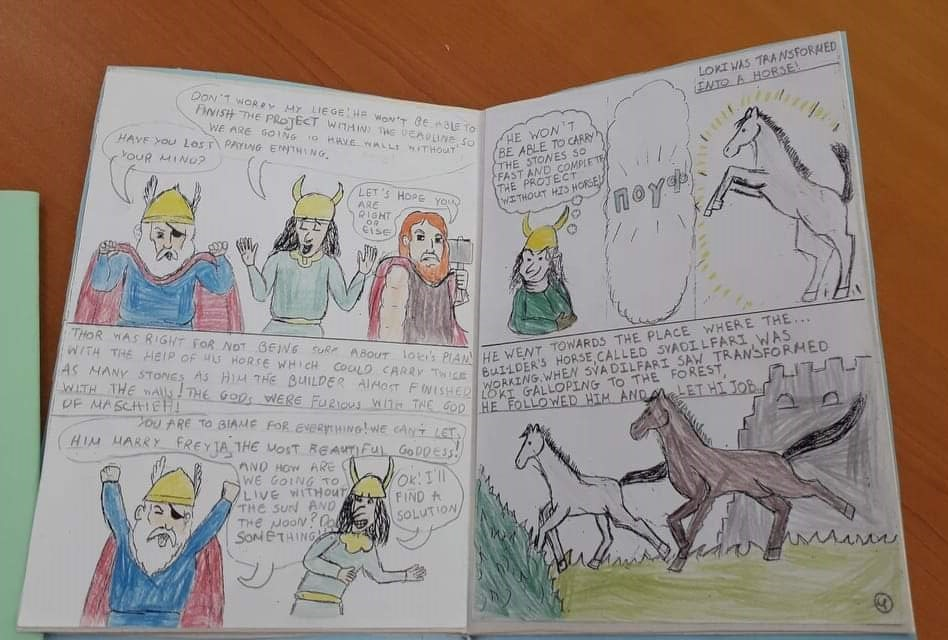 HAVE YOU LOST
YOUR MIND?
DON'T WORRY MY LIEGE! HE WON'T BE ABLE TO
FINISH THE PROJECT WITHIN THE DEADLINE SO
WE ARE GOING TO HAVE WALLS WITHOUT
PAYING ENYTHING.
LET'S HOPE YOU
ARE
RIGHT
OR
ELSE
THOR WAS RIGHT FOR NOT BEING SURE ABOUT LOKI'S PLAN!
WITH THE HELP OF HIS HORSE WHICH COULD CARRY TWICE
AS MANY STONES AS HIM THE BUILDER ALMOST FINISHED
WITH THE WALLS! THE GODS WERE FURIOUS WITH THE GOD
OF MASCHIEF!
YOU ARE TO BLAME FOR EVERYTHING! WE CAN'T LET
HIM MARRY FREYJA, THE MOST BEAUTIFUL GODDESS!
AND HOW ARE
WE GOING TO
LIVE WITHOUT
THE SUN AND
THE MOON? DO
SOMETHING!
OK! I'll
FIND A
SOLUTION
HE WON'T
BE ABLE TO CARRY
THE STONES SO
FAST AND COMPLETE
THE PROJECT
WITHOUT HIS HORSE!
ΠΟΥΦ
LOKI WAS TRANSFORMED
INTO A HORSE!
HE WENT TOWARDS THE PLACE WHERE THE...
BUILDER'S HORSE, CALLED SVADILFARI, WAS
WORKING. WHEN SVADILFARI SAW TRANSFORMED
LOKI GALLOPING TO THE FOREST,
HE FOLLOWED HIM AND LET HI JOB.
4